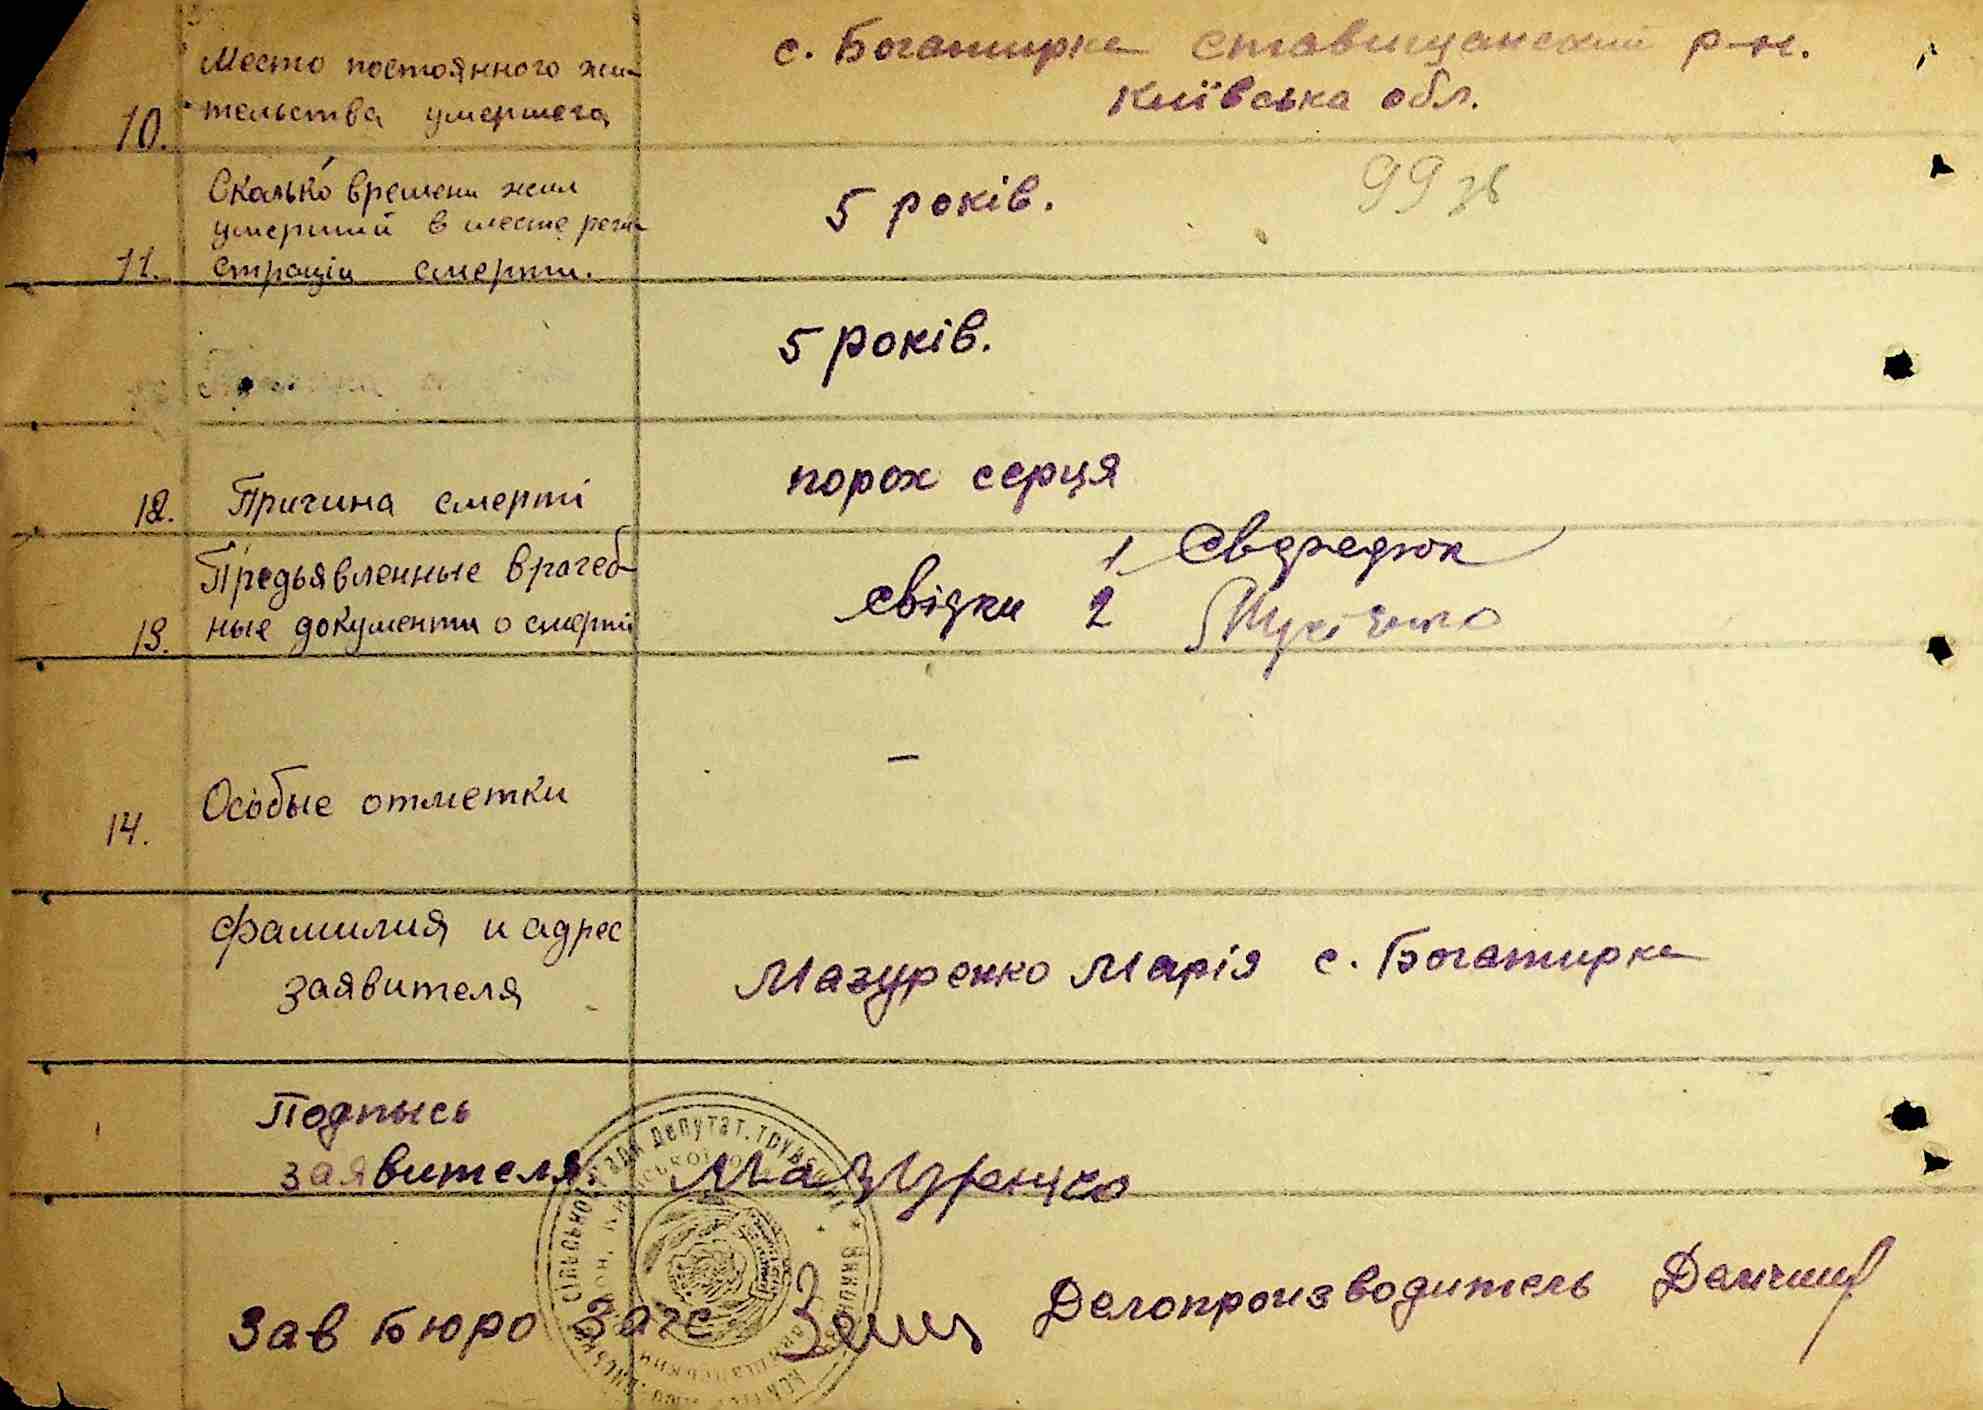 10. Место постоянного жи-
тельства умершего
с. Богатирка ставищанский р-н.
Київська обл.
11. Сколько времени жил
умерший в месте реги-
страціи смерти.
5 років.
99
5 років.
12. Причина смерті
порок серця
13. Предьявленные врачеб-
ные документи о смерті
свідки 1
2
14. Особые отметки
–
Фамилия и адрес
заявителя
Мазуренко Марія с. Богатирка
Подпысь
заявителя.
Мазуренко
Зав Бюро Загс
Делопроизводитель
депутат. трудящих